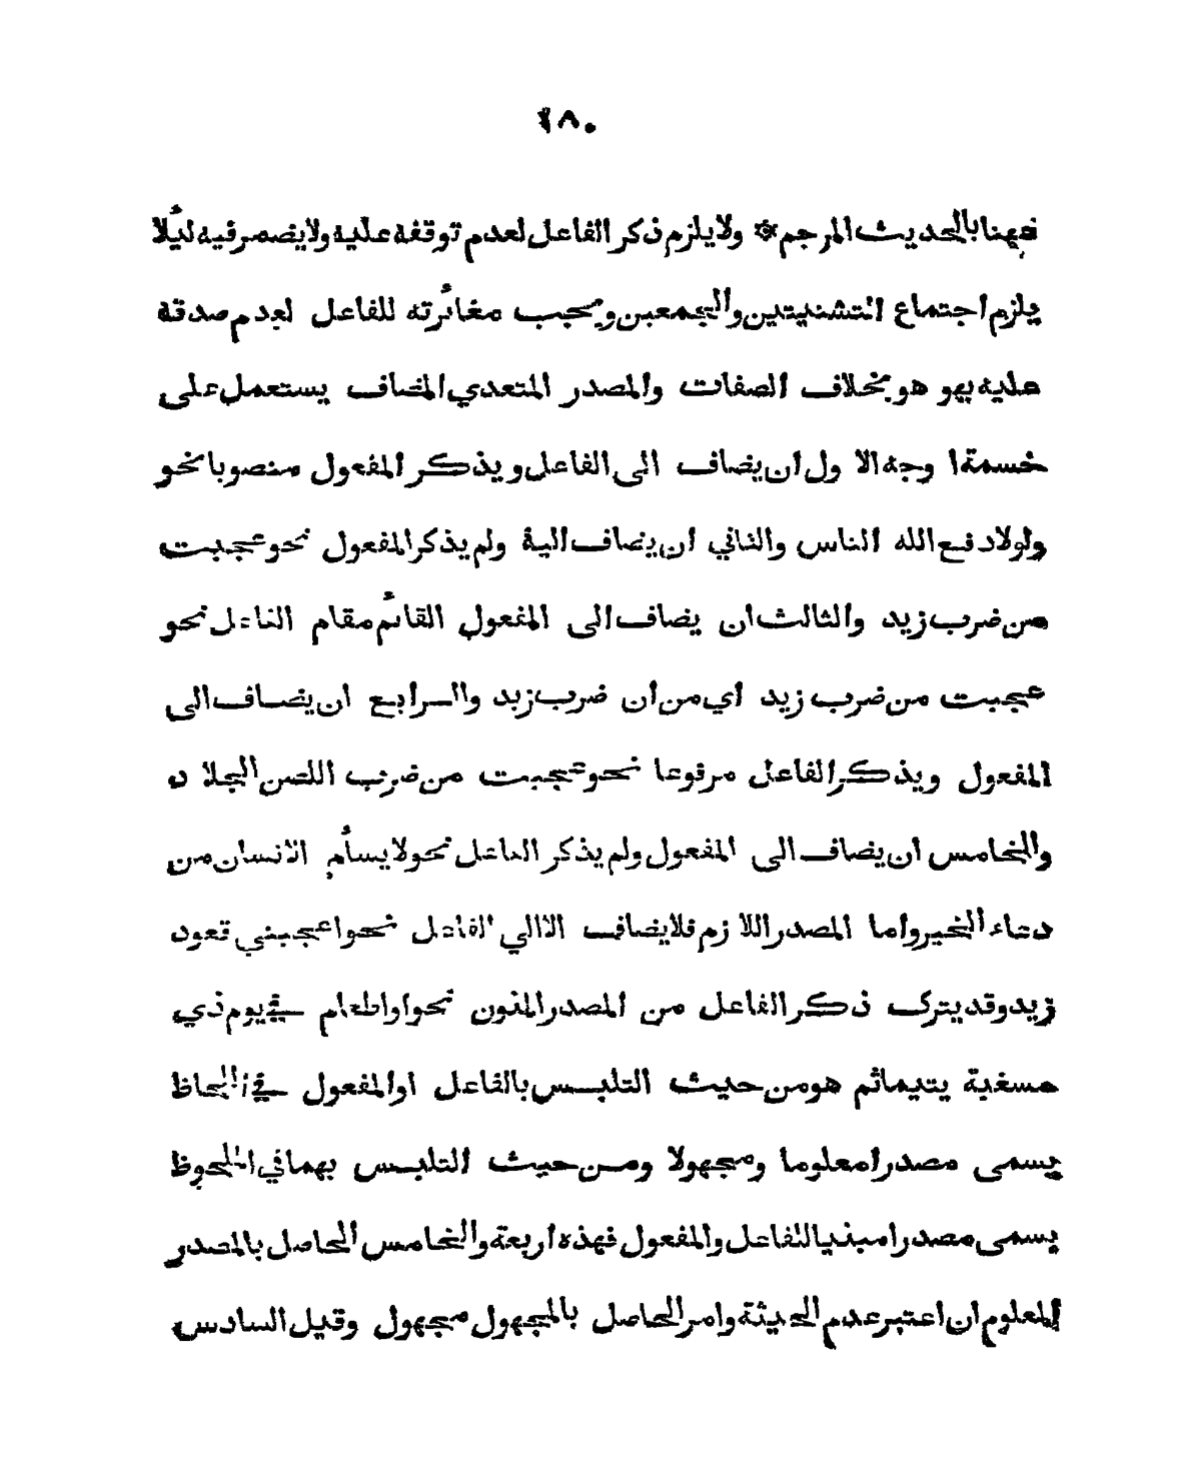 ٢٨٠
فههنا بالحديث المرجم * ولا يلزم ذكر الفاعل لعدم توقفه عليه ولا يضمر فيه لئلا
يلزم اجتماع التشنيتين والجمعين ويجب مغائرته للفاعل لعدم صدقه
عليه بهو هو بخلاف الصفات والمصدر المتعدي المضاف يستعمل على
خسمة اوجه الاول ان يضاف الى الفاعل ويذكر المفعول منصوبا نحو
ولولا دفع الله الناس والثاني ان يضاف اليه ولم يذكر المفعول نحو عجبت
من ضرب زيد والثالث ان يضاف الى المفعول القائم مقام الفاعل نحو
عجبت من ضرب زيد اي من ان ضرب زيد والرابع ان يضاف الى
المفعول ويذكر الفاعل مرفوعا نحو عجبت من ضرب اللص الجلاد
والخامس ان يضاف الى المفعول ولم يذكر الفاعل نحو لا يسأم الانسان من
دعاء الخير واما المصدر اللازم فلا يضاف الا الي الفاعل نحو اعجبني قعود
زيد وقد يترك ذكر الفاعل من المصدر المنون نحو او اطعام في يوم ذي
مسغبة يتيما ثم هو من حيث التلبس بالفاعل او المفعول في اللحاظ
يسمى مصدرا معلوما ومجهولا ومن حيث التلبس بهما في الملحوظ
يسمى مصدرا مبنيا للفاعل والمفعول فهذه اربعة والخامس الحاصل بالمصدر
المعلوم ان اعتبر عدم الحيثة وامر الحاصل بالمجهول مجهول وقيل السادس